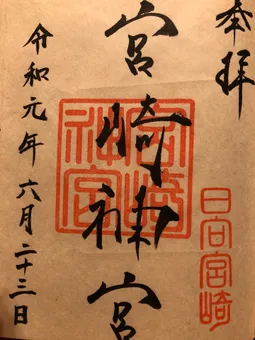 奉拝
宮崎神宮
令和元年六月二十三日
宮崎神宮
日向宮崎